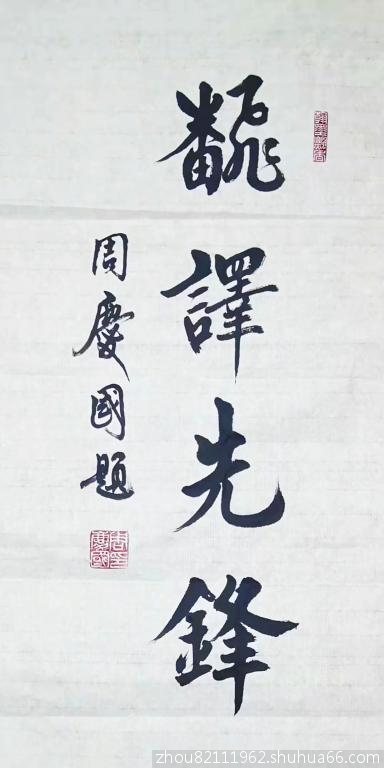 飜譯先鋒
周慶國題
zhou82111962.shuhua66.com